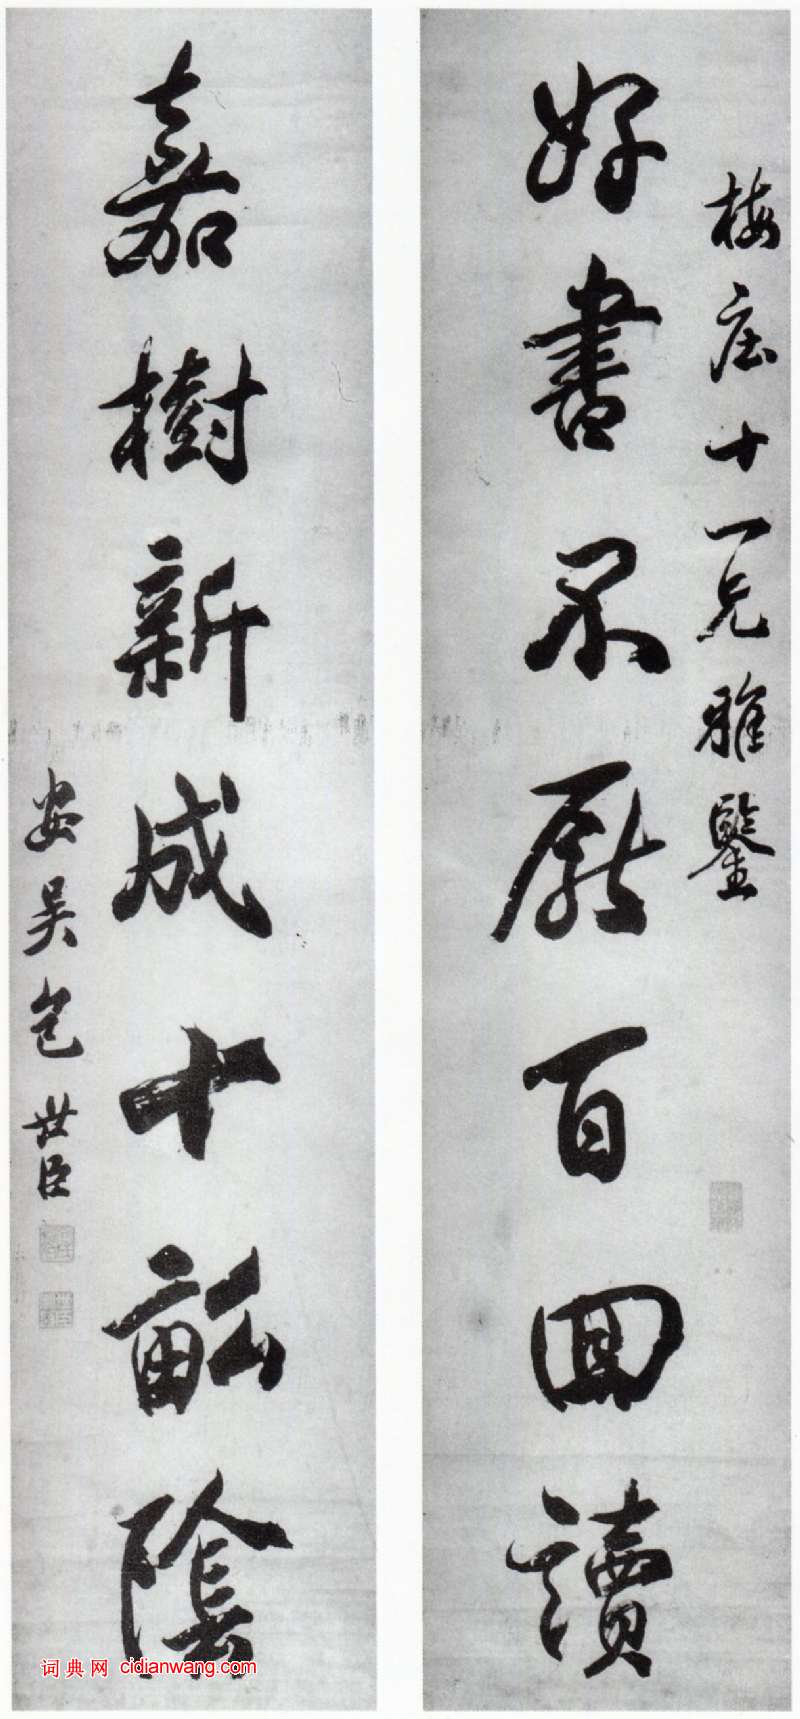 梅庄十一兄雅鑒
好書不厭百回讀
嘉樹新成十畝陰
安吳包世臣
词典网 cidianwang.com